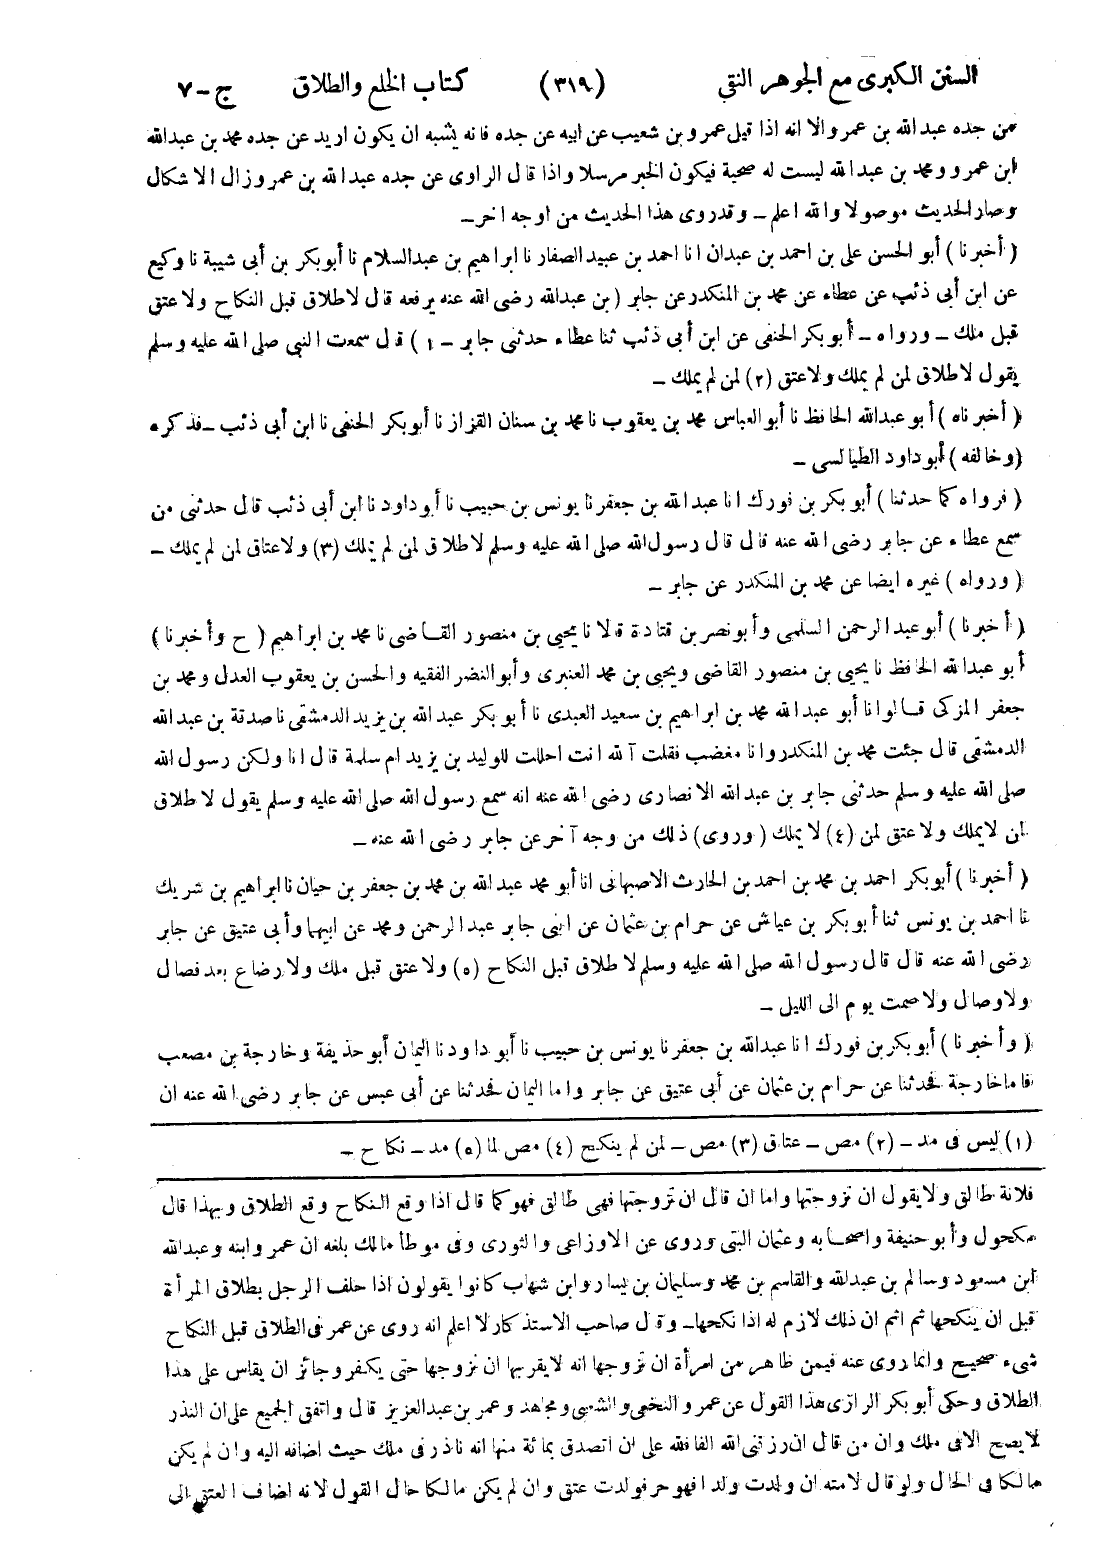 السنن الكبرى مع الجوهر النقي (٣١٩) كتاب الخلع والطلاق ج-٧
عن جده عبدالله بن عمرو الا انه اذا قيل عمرو بن شعيب عن ابيه عن جده فانه يشبه ان يكون اريد عن جده محمد بن عبدالله
ابن عمرو ومحمد بن عبدالله ليست له صحبة فيكون الخبر مرسلا واذا قال الراوى عن جده عبدالله بن عمرو زال الاشكال
وصار الحديث موصولا والله اعلم - وقد روى هذا الحديث من اوجه اخر -
( أخبرنا ) أبو الحسن على بن احمد بن عبدان انا احمد بن عبيد الصفار نا ابراهيم بن عبدالسلام نا أبوبكر بن أبى شيبة نا وكيع
عن ابن أبى ذئب عن عطاء عن محمد بن المنكدر عن جابر ( بن عبدالله رضى الله عنه يرفعه قال لاطلاق قبل النكاح ولا عتق
قبل ملك - ورواه - أبوبكر الحنفى عن ابن أبى ذئب ثنا عطاء حدثنى جابر - ١ ) قال سمعت النبى صلى الله عليه وسلم
يقول لاطلاق لمن لم يملك ولاعتق (٢) لمن لم يملك -
( أخبرناه ) أبو عبدالله الحافظ نا أبو العباس محمد بن يعقوب نا محمد بن سنان القزاز نا أبوبكر الحنفى نا ابن أبى ذئب - فذكره
(وخالفه ) أبوداود الطيالسى -
( فرواه كما حدثنا ) أبوبكر بن فورك انا عبدالله بن جعفر نا يونس بن حبيب نا أبوداود نا ابن أبى ذئب قال حدثنى من
سمع عطاء عن جابر رضى الله عنه قال قال رسول الله صلى الله عليه وسلم لاطلاق لمن لم يملك (٣) ولاعتاق لمن لم يملك -
( ورواه ) غيره ايضا عن محمد بن المنكدر عن جابر -
( أخبرنا ) أبوعبد الرحمن السلمى وأبونصر بن قتادة قالا نا يحيى بن منصور القاضى نا محمد بن ابراهيم ( ح وأخبرنا )
أبو عبدالله الحافظ نا يحيى بن منصور القاضى ويحيى بن محمد العنبرى وأبو النضر الفقيه والحسن بن يعقوب العدل ومحمد بن
جعفر المزكى قالوا نا أبو عبدالله محمد بن ابراهيم بن سعيد العبدى نا أبوبكر عبدالله بن يزيد الدمشقى نا صدقة بن عبدالله
الدمشقى قال جئت محمد بن المنكدر وانا مغضب فقلت آلله انت احللت للوليد بن يزيد ام سلمة قال انا ولكن رسول الله
صلى الله عليه وسلم حدثنى جابر بن عبدالله الانصارى رضى الله عنه انه سمع رسول الله صلى الله عليه وسلم يقول لاطلاق
لمن لايملك ولاعتق لمن (٤) لا يملك ( وروى ) ذلك من وجه آخر عن جابر رضى الله عنه -
( أخبرنا ) أبوبكر احمد بن محمد بن احمد بن الحارث الاصبهانى انا أبو محمد عبدالله بن محمد بن جعفر بن حيان نا ابراهيم بن شريك
نا احمد بن يونس ثنا أبوبكر بن عياش عن حرام بن عثمان عن ابنى جابر عبدالرحمن ومحمد عن ابيهما وأبى عتيق عن جابر
رضى الله عنه قال قال رسول الله صلى الله عليه وسلم لاطلاق قبل النكاح (٥) ولاعتق قبل ملك ولا رضاع بعد فصال
ولاوصال ولاصمت يوم الى الليل -
( وأخبرنا ) أبوبكر بن فورك انا عبدالله بن جعفر نا يونس بن حبيب نا أبو داود نا اليمان أبو حذيفة وخارجة بن مصعب
فاما خارجة فحدثنا عن حرام بن عثمان عن أبى عتيق عن جابر واما اليمان فحدثنا عن أبى عبس عن جابر رضى الله عنه ان
(١) ليس فى مد - (٢) مص - عتاق (٣) مص - لمن لم ينكح (٤) مص لما (٥) مد - نكاح -
فلانة طالق ولا يقول ان تزوجتها واما ان قال ان تزوجتها فهى طالق فهو كما قال اذا وقع النكاح وقع الطلاق وبهذا قال
مكحول وأبو حنيفة واصحابه وعثمان البتى وروى عن الاوزاعى والثورى وفى موطأ مالك بلغه ان عمر وابنه وعبدالله
ابن مسعود وسالم بن عبدالله والقاسم بن محمد وسليمان بن يسار وابن شهاب كانوا يقولون اذا حلف الرجل بطلاق المرأة
قبل ان ينكحها ثم اثم ان ذلك لازم له اذا نكحها - وقال صاحب الاستذكار لا اعلم انه روى عن عمر فى الطلاق قبل النكاح
شىء صحيح وانما روى عنه فيمن ظاهر من امرأة ان تزوجها انه لا يقربها ان تزوجها حتى يكفر وجائز ان يقاس على هذا
الطلاق وحكى أبوبكر الرازى هذا القول عن عمر والنخعى والشعبى ومجاهد وعمر بن عبدالعزيز قال واتفق الجميع على ان النذر
لايصح الا فى ملك وان من قال ان رزقنى الله الفا فلله على ان اتصدق بمائة منها انه ناذر فى ملك حيث اضافه اليه وان لم يكن
مالكا فى الحال ولو قال لامته ان ولدت ولدا فهو حر فولدت عتق وان لم يكن مالكا حال القول لانه اضاف العتق الى